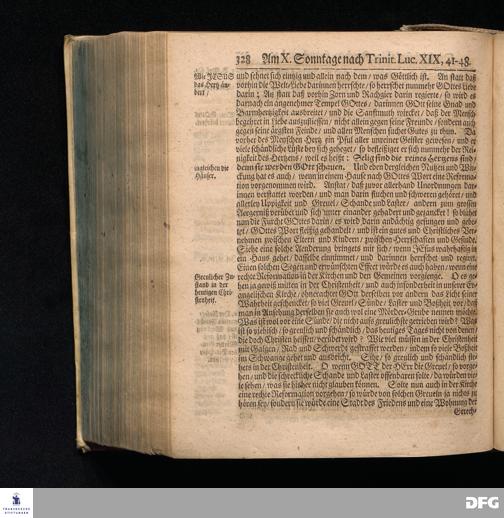 328 Am X. Sonntage nach Trinit. Luc. XIX, 41-48.
Wie JESUS
das Hertz än-
dert/
und sehnet sich einzig und allein nach dem/ was Göttlich ist. An statt daß
vorhin die Welt-Liebe darinnen herrschte/ so herrschet nunmehr GOttes Liebe
darin; An statt daß vorhin Zorn und Rachgier darin regierte/ so wird es
darnach ein angenehmer Tempel GOttes/ darinnen GOtt seine Gnad und
Barmhertzigkeit ausbreitet/ und die Sanftmuth würcket/ daß der Mensch
begehret in Liebe auszufliessen/ nicht allein gegen seine Freunde/ sondern auch
gegen seine ärgsten Feinde/ und allen Menschen suchet Gutes zu thun. Da
vorher des Menschen Hertz ein Pful aller unreiner Geister gewesen/ und er
viele schändliche Lüste bey sich geheget/ so befleißiget er sich nunmehr der Rei-
nigkeit des Hertzens/ weil es heißt: Selig sind die reines Hertzens sind/
ingleichen die
Häuser.
denn sie werden GOtt schauen. Und eben dergleichen Nutzen und Wür-
ckung hat es auch/ wenn in einem Hause nach GOttes Wort eine Reforma-
tion vorgenommen wird. Anstatt/ daß zuvor allerhand Unordnungen dar-
innen verstattet worden/ und man darin fluchen und schweren gehöret/ und
allerley Uppigkeit und Greuel/ Schande und Laster/ andern zum grossen
Aergerniß verübet und sich unter einander gehadert und gezancket; so blühet
nun die Furcht GOttes darin/ es wird darin andächtig gesungen und gebe-
tet/ GOttes Wort fleißig gehandelt/ und ist ein gutes und Christliches Ver-
nehmen zwischen Eltern und Kindern/ zwischen Herrschaften und Gesinde.
Siehe eine solche Aenderung bringets mit sich/ wenn JEsus wahrhaftig in
ein Haus gehet/ dasselbe einnimmet/ und darinnen herrschet und regiret.
Einen solchen Segen und erwünschten Effect würde es auch haben/ wenn eine
Greulicher Zu-
stand in der
heutigen Chri-
stenheit.
rechte Reformation in der Kirchen und den Gemeinen vorgienge. O es ge-
hen ja gewiß mitten in der Christenheit/ und auch insonderheit in unserer Ev-
angelischen Kirche/ ohnerachtet GOtt derselben vor andern das Licht seiner
Wahrheit geschencket/ so viel Greuel/ Sünde/ Laster und Bosheit vor/ daß
man in Ansehung derselben sie auch wol eine Mörder-Grube nennen möchte.
Was ist wol vor eine Sünde/ die nicht aufs greulichste getrieben würde? Was
ist so viehisch/ so greulich und schändlich/ das heutiges Tages nicht von denen/
die doch Christen heissen/ verübet wird? Wie viel müssen in der Christenheit
mit Galgen/ Rad und Schwerdt gestraffet werden/ indem so viele Bosheit
im Schwange gehet und ausbricht. Siehe/ so greulich und schändlich ste-
hets in der Christenheit. O wenn GOTT der HErr die Greuel/ so vorge-
hen/ und die schreckliche Schande und Laster offenbaren solte/ da würden vie-
le sehen/ was sie bisher nicht glauben können. Solte nun auch in der Kirche
eine rechte Reformation vorgehen/ so würde von solchen Greueln ja nichts zu
hören sey/ sondern sie würde eine Stadt des Friedens und eine Wohnung der
Gerech-
FRANCKESCHE
STIFTUNGEN
DFG